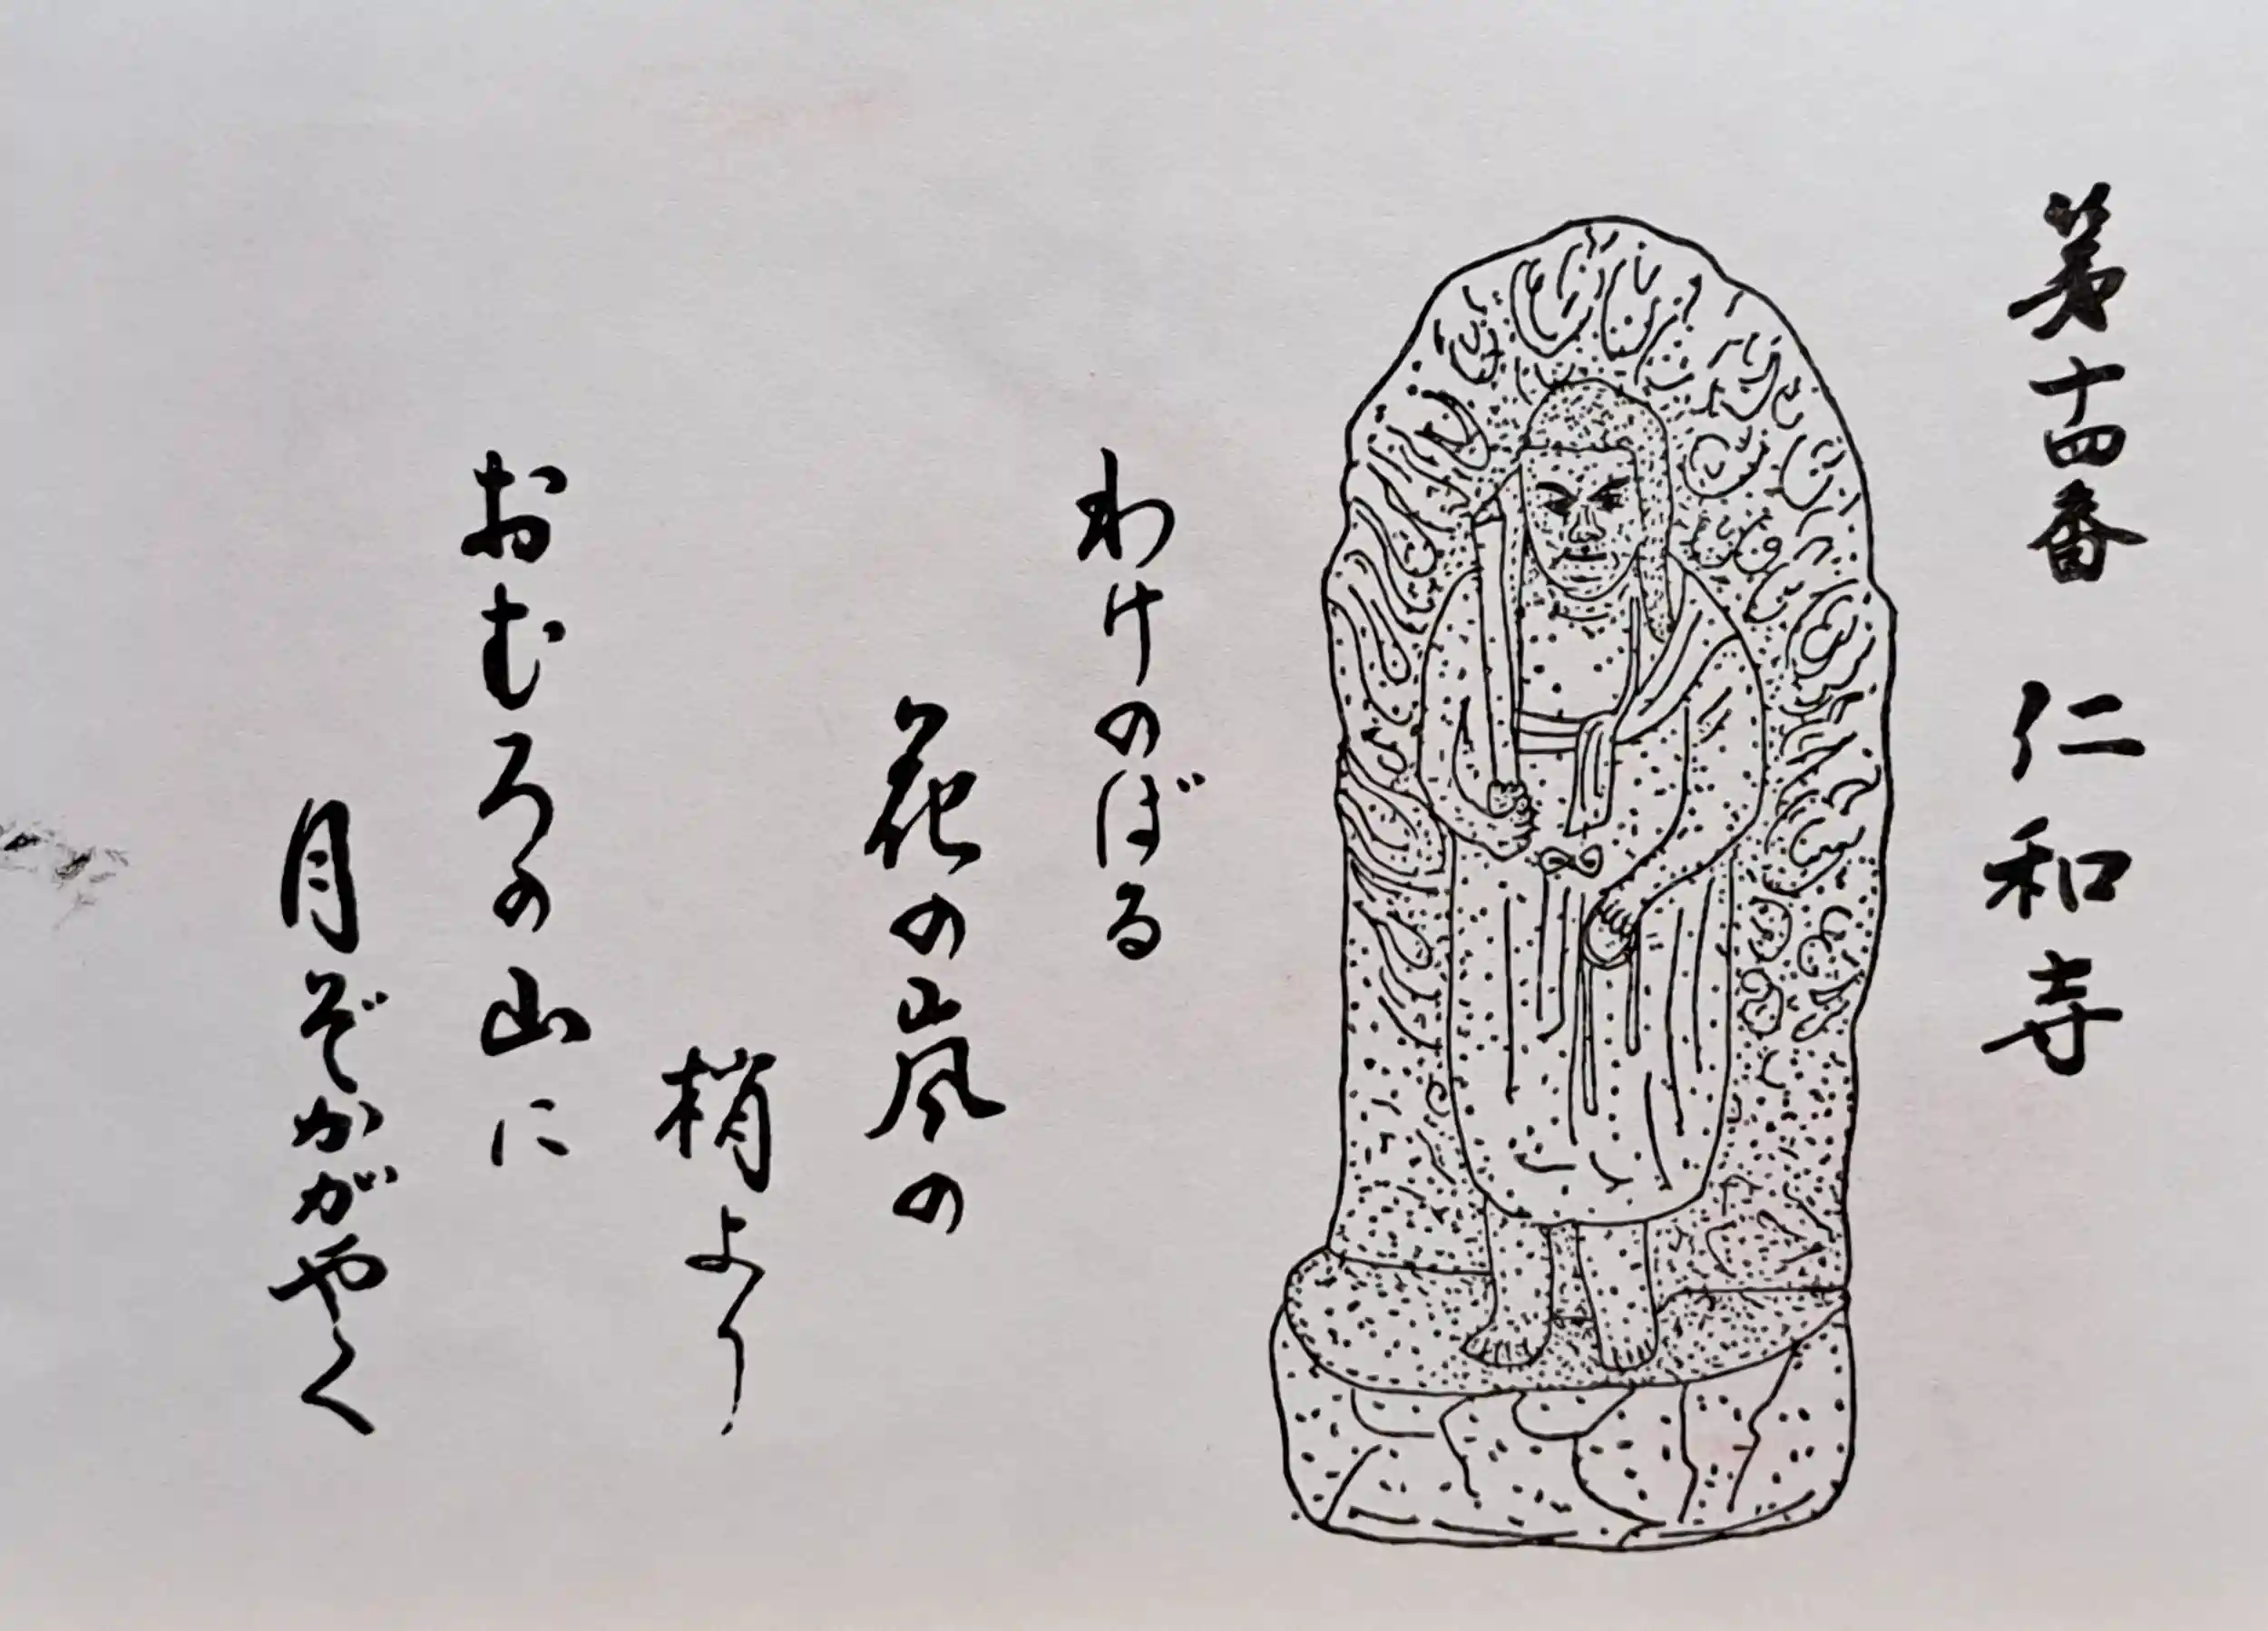 第十四番 仁和寺
わけのぼる
花の嵐の
梢より
おむろの山に
月ぞかがやく